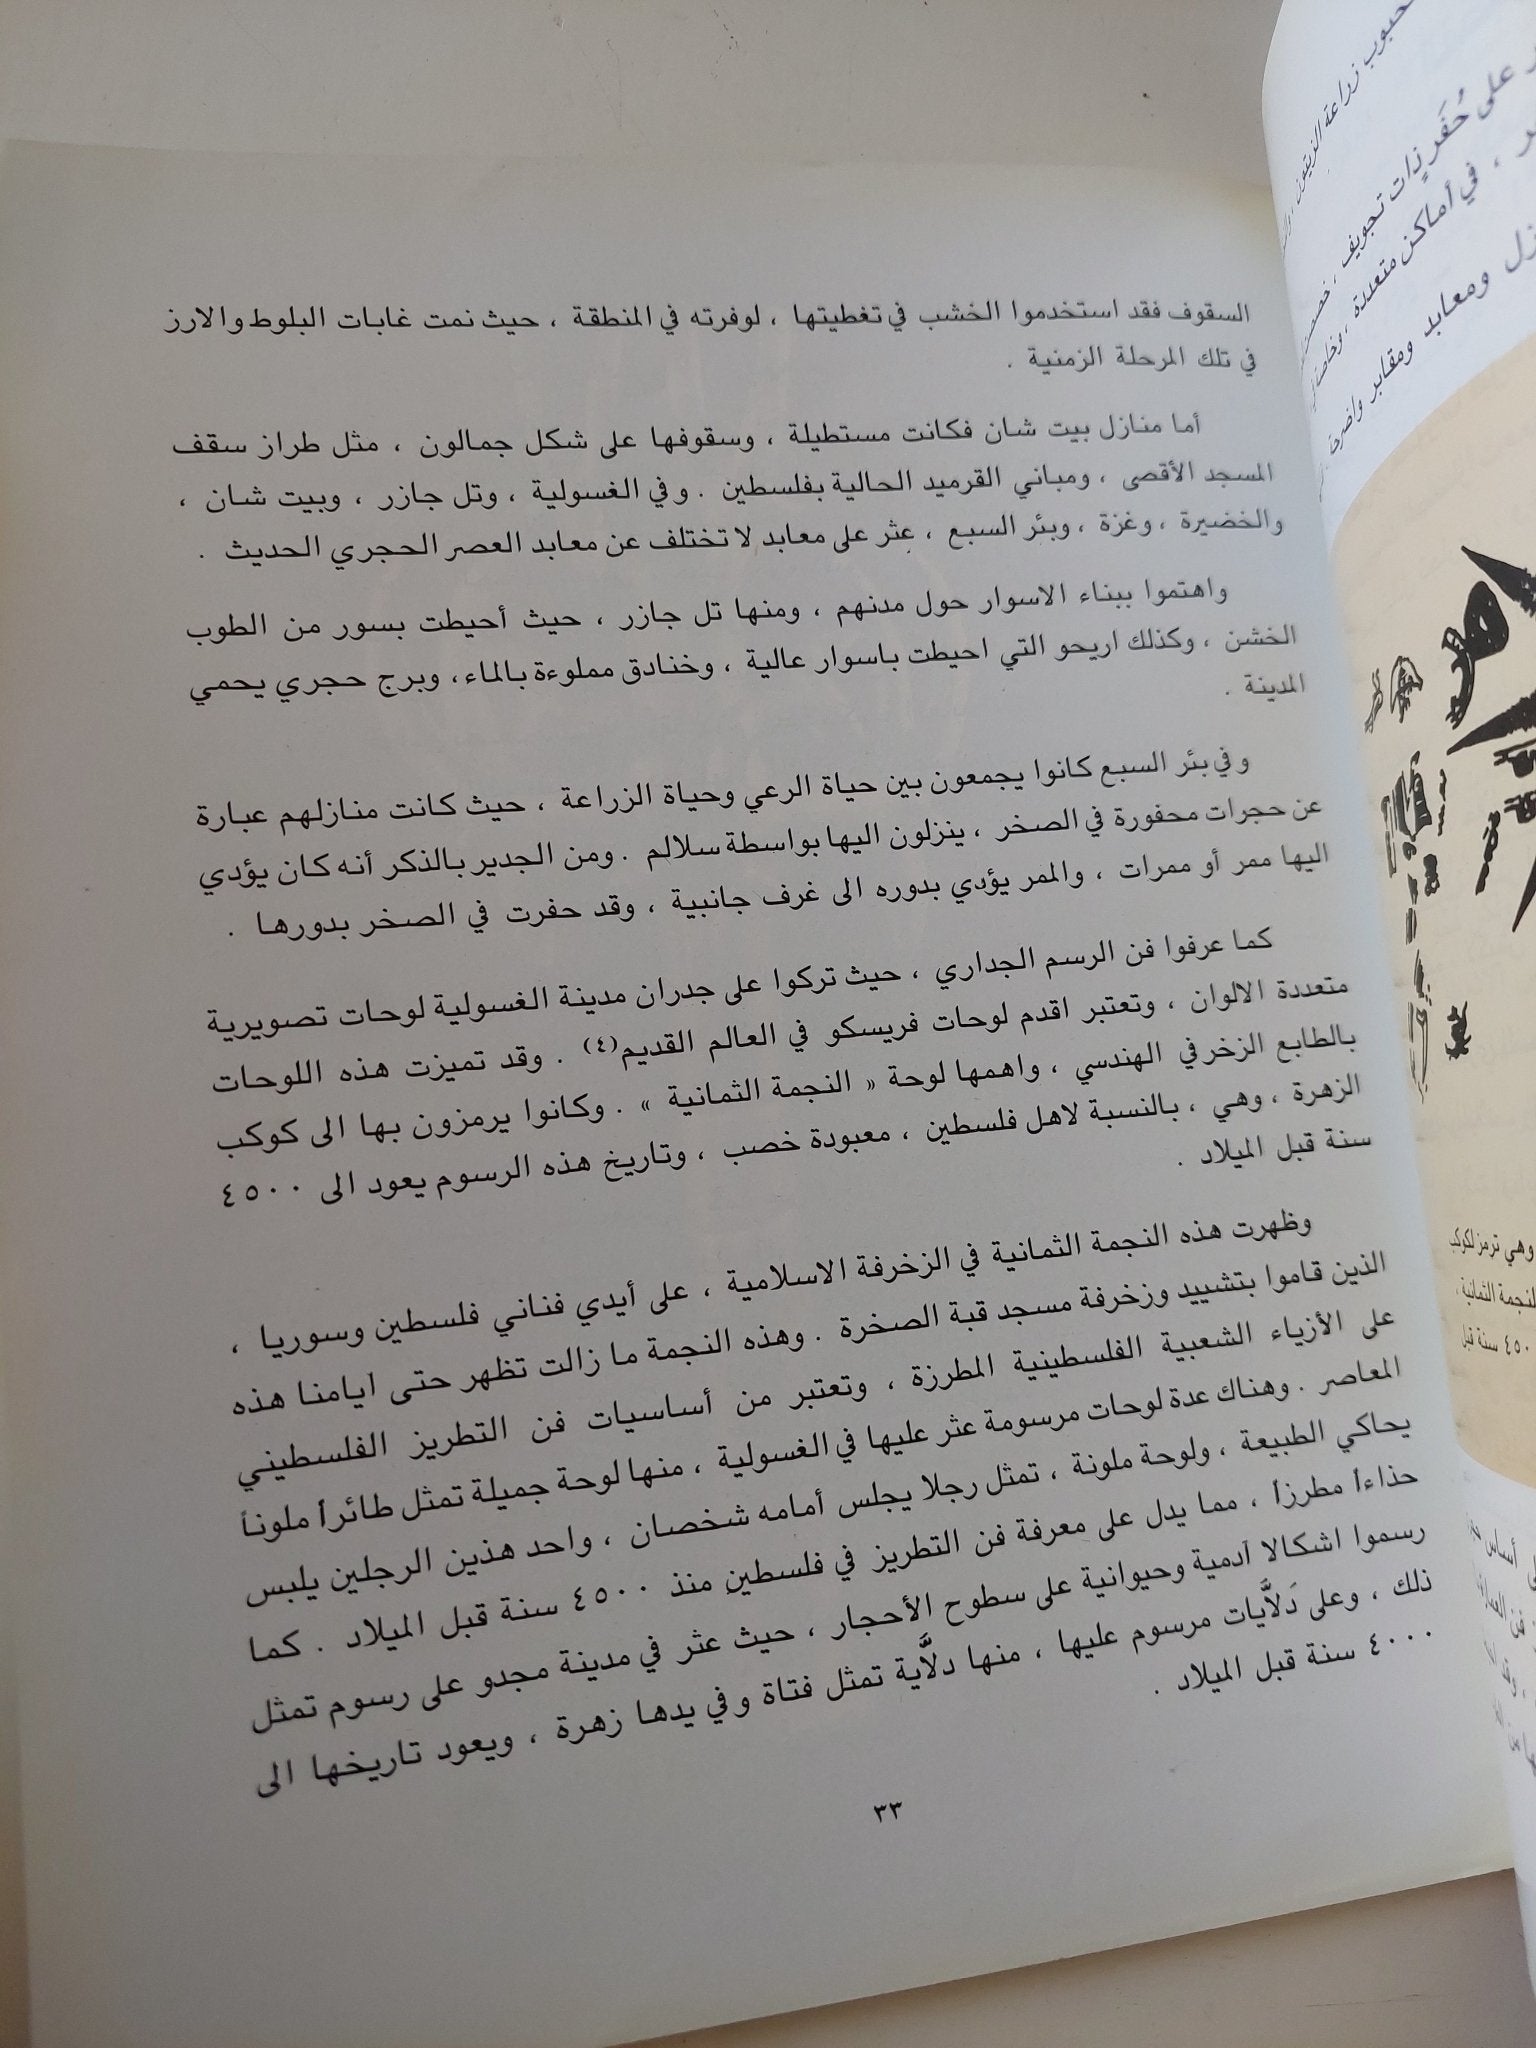 السقوف فقد استخدموا الخشب في تغطيتها ، لوفرته في المنطقة ، حيث نمت غابات البلوط والارز
في تلك المرحلة الزمنية .
أما منازل بيت شان فكانت مستطيلة ، وسقوفها على شكل جمالون ، مثل طراز سقف
المسجد الأقصى ، ومباني القرميد الحالية بفلسطين . وفي الغسولية ، وتل جازر ، وبيت شان ،
والخضيرة ، وغزة ، وبئر السبع ، عثر على معابد لا تختلف عن معابد العصر الحجري الحديث .
واهتموا ببناء الاسوار حول مدنهم ، ومنها تل جازر ، حيث أحيطت بسور من الطوب
الخشن ، وكذلك اريحو التي احيطت باسوار عالية ، وخنادق مملوءة بالماء ، وبرج حجري يحمي
المدينة .
وفي بئر السبع كانوا يجمعون بين حياة الرعي وحياة الزراعة ، حيث كانت منازلهم عبارة
عن حجرات محفورة في الصخر ، ينزلون اليها بواسطة سلالم . ومن الجدير بالذكر أنه كان يؤدي
اليها ممر أو ممرات ، والممر يؤدي بدوره الى غرف جانبية ، وقد حفرت في الصخر بدورها .
كما عرفوا فن الرسم الجداري ، حيث تركوا على جدران مدينة الغسولية لوحات تصويرية
متعددة الالوان ، وتعتبر اقدم لوحات فريسكو في العالم القديم(٤) . وقد تميزت هذه اللوحات
بالطابع الزخرفي الهندسي ، واهمها لوحة « النجمة الثمانية » . وكانوا يرمزون بها الى كوكب
الزهرة ، وهي ، بالنسبة لاهل فلسطين ، معبودة خصب ، وتاريخ هذه الرسوم يعود الى ٤٥٠٠
سنة قبل الميلاد .
وظهرت هذه النجمة الثمانية في الزخرفة الاسلامية ، على أيدي فناني فلسطين وسوريا ،
الذين قاموا بتشييد وزخرفة مسجد قبة الصخرة . وهذه النجمة ما زالت تظهر حتى ايامنا هذه
على الأزياء الشعبية الفلسطينية المطرزة ، وتعتبر من أساسيات فن التطريز الفلسطيني
المعاصر . وهناك عدة لوحات مرسومة عثر عليها في الغسولية ، منها لوحة جميلة تمثل طائراً ملوناً
يحاكي الطبيعة ، ولوحة ملونة ، تمثل رجلا يجلس أمامه شخصان ، واحد هذين الرجلين يلبس
حذاءاً مطرزاً ، مما يدل على معرفة فن التطريز في فلسطين منذ ٤٥٠٠ سنة قبل الميلاد . كما
رسموا اشكالا آدمية وحيوانية على سطوح الأحجار ، حيث عثر في مدينة مجدو على رسوم تمثل
ذلك ، وعلى دَلاَّيات مرسوم عليها ، منها دلاَّية تمثل فتاة وفي يدها زهرة ، ويعود تاريخها الى
٤٠٠٠ سنة قبل الميلاد .
٣٣
زراعة الزيتون
على حُفَر ذات تجويف ،
، في أماكن متعددة ، وخاصة
ومعابد ومقابر
وهي ترمز لكوكب
النجمة الثمانية ،
سنة قبل
أساس